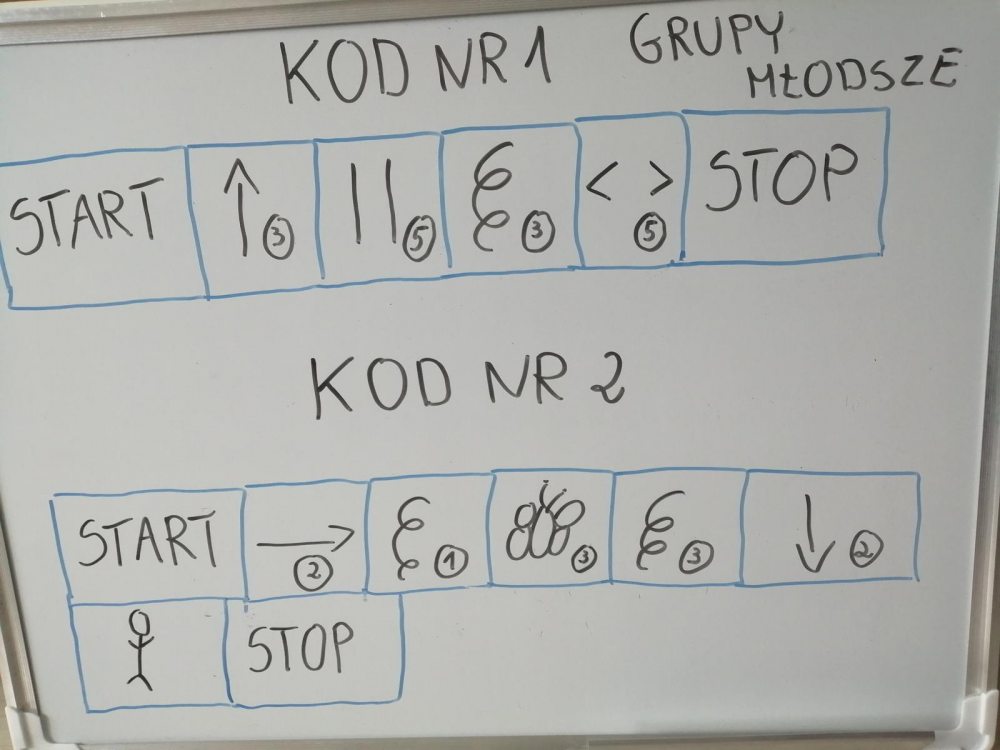 KOD NR 1 GRUPY
MŁODSZE
START ↑ 3 || 5 3 < > 5 STOP
KOD NR 2
START → 2 1 3 3 ↓ 2
STOP